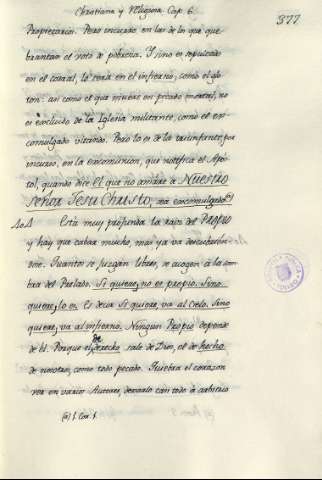 Christiana y Religiosa Cap. 6.
377
Propietarios. Pero incurso en las de los que que-
brantan el voto de pobreza. Y sino es sepultado
en el corral, lo será en el infierno; como el glo-
ton: asi como el que muere en pecado mortal, no
es excluido de la Iglesia militante, como el ex-
comulgado vitando. Pero lo es de la triunfante, por
incurso, en la excomunion, que notifica el Apos-
tol, quando dice El que no amáre a Nuestro
Señor Jesu Christo, sea excomulgado (a)
Está muy profunda la raiz del Propio
y hay que cabar mucho, mas ya va descubrien-
dose. Quantos se juzgan libres, se acogen á la som-
bra del Prelado. Si quiere, no es propio. Sino
quiere, lo es. Es decir Si quiere, va al cielo. Sino
quiere, va al infierno. Ningun Propio depende
de él. Porque el derecho sale de Dios, el de hecho
de nosotros, como todo pecado. Quiebra el corazon
ver en varios Autores, dexarlo casi todo à arbitrio
(a) 1. Cor.